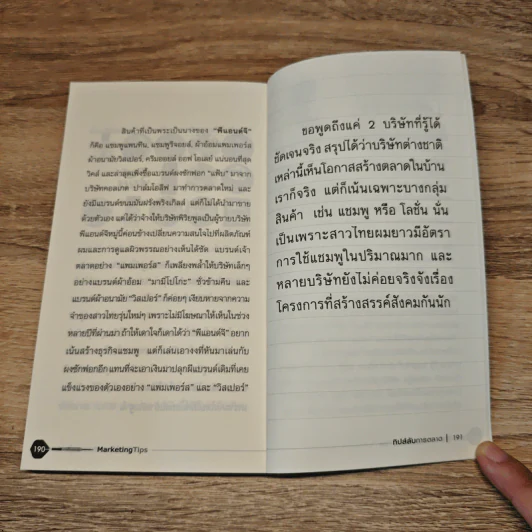 สินค้าที่เป็นพระเป็นนางของ "พีแอนด์จี"
ก็คือ แชมพูแพนทีน, แชมพูรีจอยส์, ผ้าอ้อมแพมเพอร์ส
ผ้าอนามัยวิสเปอร์, ครีมออยล์ ออฟ โอเลย์ แน่นอนที่สุด
วิคส์ และล่าสุดเพิ่งซื้อแบรนด์ผงซักฟอก "แฟ้บ" มาจาก
บริษัทคอลเกต ปาล์มโอลีฟ มาทำการตลาดใหม่ และ
ยังมีแบรนด์ขนมมันฝรั่งพริงเกิลส์ แต่ก็ไม่ได้นำมาขาย
ด้วยตัวเอง แต่ได้ว่าจ้างให้บริษัทพิธิบูลเป็นผู้ขายบริษัท
พีแอนด์จีหมู่นี้ค่อนข้างเปลี่ยนความสนใจไปที่ผลิตภัณฑ์
ผมและการดูแลผิวพรรณอย่างเห็นได้ชัด แบรนด์เจ้า
ตลาดอย่าง "แพมเพอร์ส" ก็เพลี่ยงพล้ำให้บริษัทเล็กๆ
อย่างแบรนด์ผ้าอ้อม "มามี่โปโกะ" ชั่วข้ามคืน และ
แบรนด์ผ้าอนามัย "วิสเปอร์" ก็ค่อยๆ เงียบหายจากความ
จำของสาวไทยรุ่นใหม่ๆ เพราะไม่มีโฆษณาให้เห็นในช่วง
หลายปีที่ผ่านมา ถ้าให้เดาใจก็เดาได้ว่า "พีแอนด์จี" อยาก
เน้นสร้างธุรกิจแชมพู แต่ก็เล่นเอางงที่หันมาเล่นกับ
ผงซักฟอกอีก แทนที่จะเอาเงินมาปลุกผีแบรนด์เดิมที่เคย
แข็งแรงของตัวเองอย่าง "แพมเพอร์ส" และ "วิสเปอร์"
190 MarketingTips
ขอพูดถึงแค่ 2 บริษัทที่รู้ได้
ชัดเจนจริง สรุปได้ว่าบริษัทต่างชาติ
เหล่านี้เห็นโอกาสสร้างตลาดในบ้าน
เราก็จริง แต่ก็เน้นเฉพาะบางกลุ่ม
สินค้า เช่น แชมพู หรือ โลชั่น นั่น
เป็นเพราะสาวไทยผมยาวมีอัตรา
การใช้แชมพูในปริมาณมาก และ
หลายบริษัทยังไม่ค่อยจริงจังเรื่อง
โครงการที่สร้างสรรค์สังคมกันนัก
ทิปส์ลับการตลาด | 191